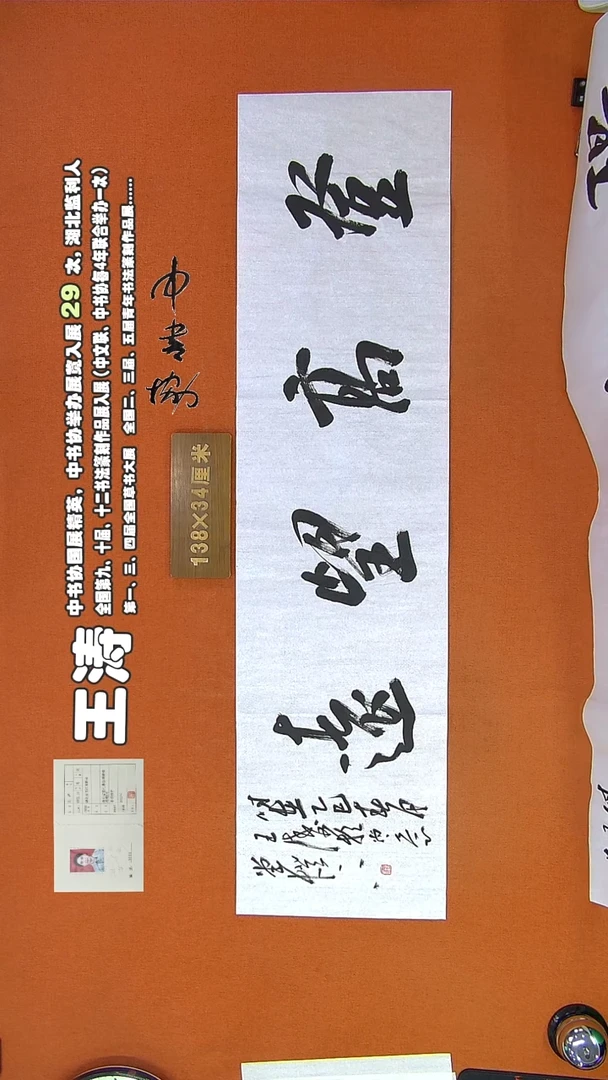 王涛
中书协国展精英，中书协举办展览入展 29 次，湖北监利人
全国第九、十届、十二书法篆刻作品展入展（中文联、中书协每4年联合举办一次）
第一、三、四届全国草书大展 全国二、三届、五届青年书法篆刻作品展......
138×34厘米
登高望遠
乙巳